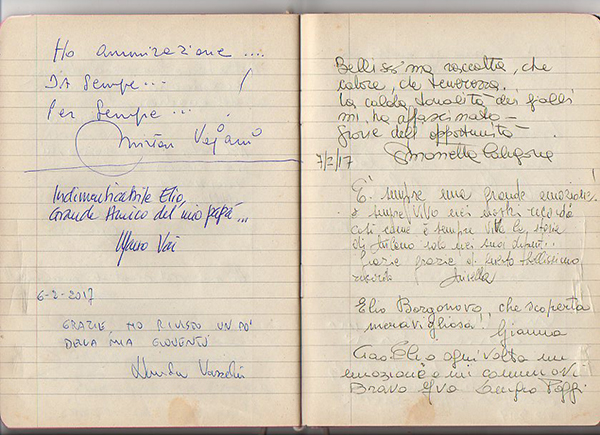 Ho ammirazione ....
Da sempre ... !
Per sempre ....
Indimenticabile Elio,
Grande Amico del mio papà...
Mauro Vai
6-2-2017
GRAZIE, HO RIVISTO UN PO'
DELLA MIA GIOVENTÙ
Bellissima raccolta, che
calore, che tenerezza.
La calda tonalità dei gialli
mi ha affascinato -
Grazie dell'opportunità -
7/2/17 Simonetta
È sempre una grande emozione.
è sempre vivo nei nostri ricordi
così come è sempre la storia
di Milano solo nei suoi dipinti..
Grazie grazie di questo bellissimo
ricordo
Elio Borgonovo, che scoperta
meravigliosa! Gianna
Ciao Elio ogni volta un
emozione e mi commuovi
Bravo Sergio Poggi